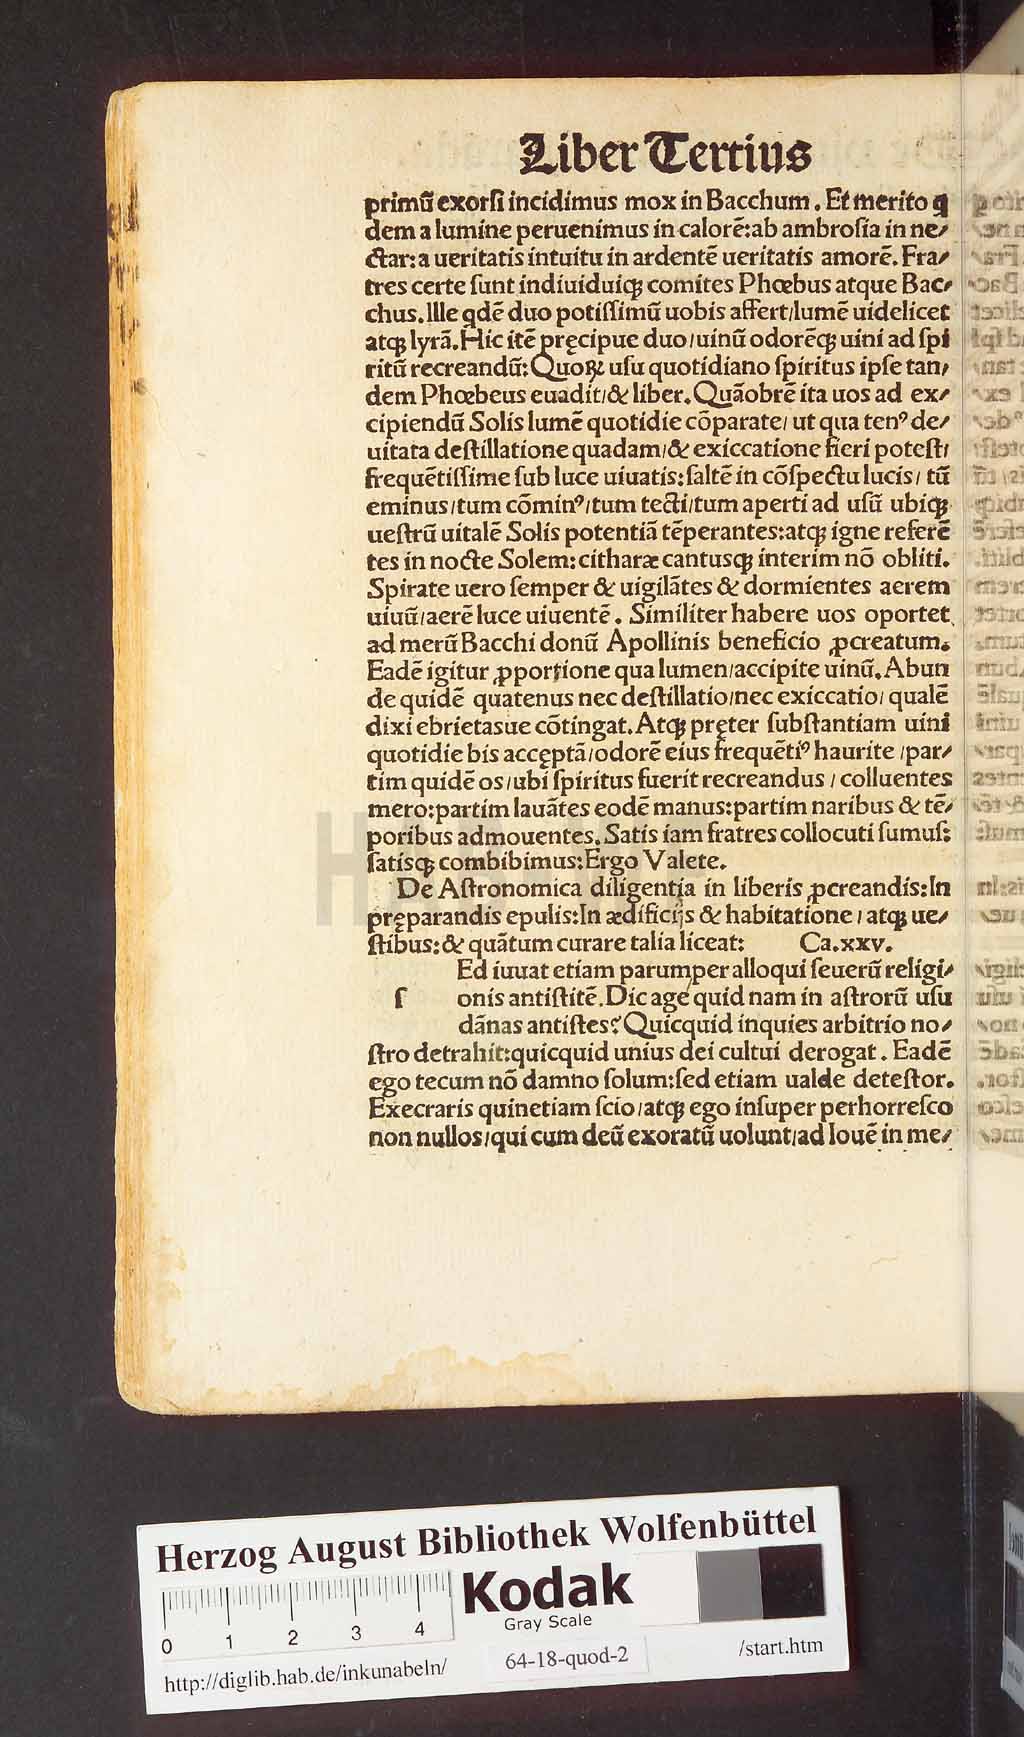 Liber Tertius
primū exorſi incidimus mox in Bacchum. Et merito q
dem a lumine peruenimus in calorē:ab ambroſia in ne/
ctar:a ueritatis intuitu in ardentē ueritatis amorē. Fra/
tres certe ſunt indiuiduiqꝫ comites Phœbus atque Bac/
chus. Ille qdē duo potiſſimū uobis affert/lumē uidelicet
atqꝫ lyrā. Hic itē pręcipue duo/uinū odorēqꝫ uini ad ſpi
ritū recreandū: Quoꝝ uſu quotidiano ſpiritus ipſe tan/
dem Phœbeus euadit/& liber. Quāobrē ita uos ad ex/
cipiendū Solis lumē quotidie cōparate/ ut qua tenꝰ de/
uitata deſtillatione quadam/& exiccatione fieri poteſt/
frequētiſſime ſub luce uiuatis:ſaltē in cōſpectu lucis/ tū
eminus/tum cōminꝰ/tum tecti/tum aperti ad uſū ubiqꝫ
ueſtrū uitalē Solis potentiā tēperantes:atqꝫ igne referē
tes in nocte Solem:citharæ cantusqꝫ interim nō obliti.
Spirate uero ſemper & uigilātes & dormientes aerem
uiuū/aerē luce uiuentē. Similiter habere uos oportet
ad merū Bacchi donū Apollinis beneficio ꝓcreatum.
Eadē igitur ꝓportione qua lumen/accipite uinū. Abun
de quidē quatenus nec deſtillatio/nec exiccatio/ qualē
dixi ebrietasue cōtingat. Atqꝫ pręter ſubſtantiam uini
quotidie bis accęptā/odorē eius frequētiꝰ haurite /par/
tim quidē os/ubi ſpiritus fuerit recreandus / colluentes
mero:partim lauātes eodē manus:partim naribus & tē/
poribus admouentes. Satis iam fratres collocuti ſumuſ:
ſatisqꝫ combibimus:Ergo Valete.
De Aſtronomica diligentia in liberis ꝓcreandis:In
pręparandis epulis:In ædificijs & habitatione / atqꝫ ue/
ſtibus:& quātum curare talia liceat: Ca.xxv.
Ed iuuat etiam parumper alloqui ſeuerū religi/
ſ onis antiſtitē. Dic age quid nam in aſtrorū uſu
dānas antiſtes? Quicquid inquies arbitrio no/
ſtro detrahit:quicquid unius dei cultui derogat. Eadē
ego tecum nō damno ſolum:ſed etiam ualde deteſtor.
Execraris quinetiam ſcio/atqꝫ ego inſuper perhorreſco
non nullos/qui cum deū exoratū uolunt/ad Iouē in me/
HAB WF
Herzog August Bibliothek Wolfenbüttel
Kodak
Gray Scale
0 1 2 3 4
http://diglib.hab.de/inkunabeln/ 64-18-quod-2 /start.htm